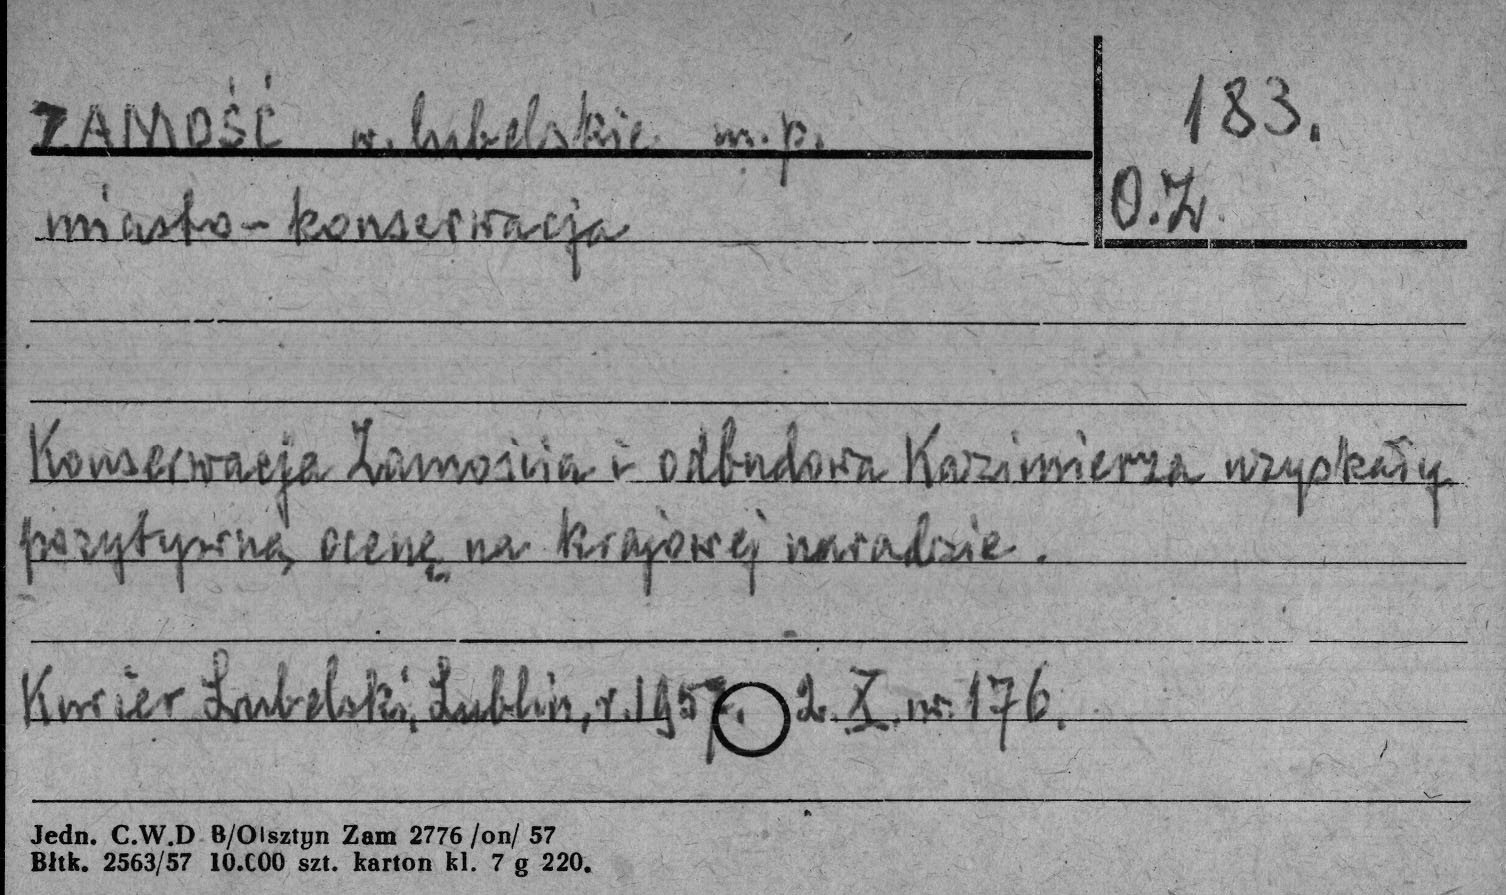 ZAMOŚĆ w. lubelskie m. p.
183.
O.Z.
miasto - konserwacja
Konserwacja Zamościa i odbudowa Kazimierza uzyskały
pozytywną ocenę na krajowej naradzie.
Kurier Lubelski, Lublin, r. 1957. 2. X. nr. 176.
Jedn. C.W.D B/Olsztyn Zam 2776 /on/ 57
Błtk. 2563/57 10.000 szt. karton kl. 7 g 220.